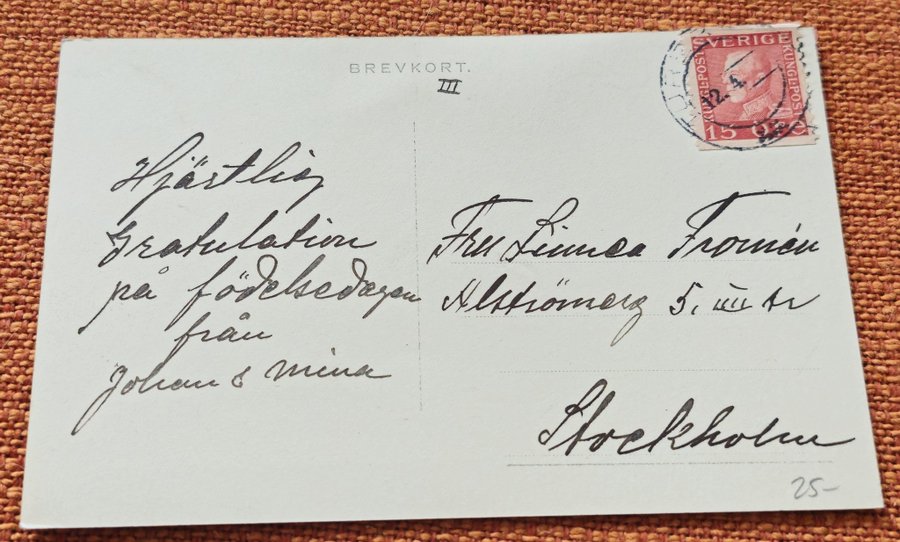 BREVKORT.
III
Hjärtlig
Gratulation
på födelsedagen
från
Johan & Mina
SVERIGE
KUNGL.POST
KUNGL.POST
15
12.4.
Fru Linnea Fromén
Alströmerg 5. III tr
Stockholm
25-